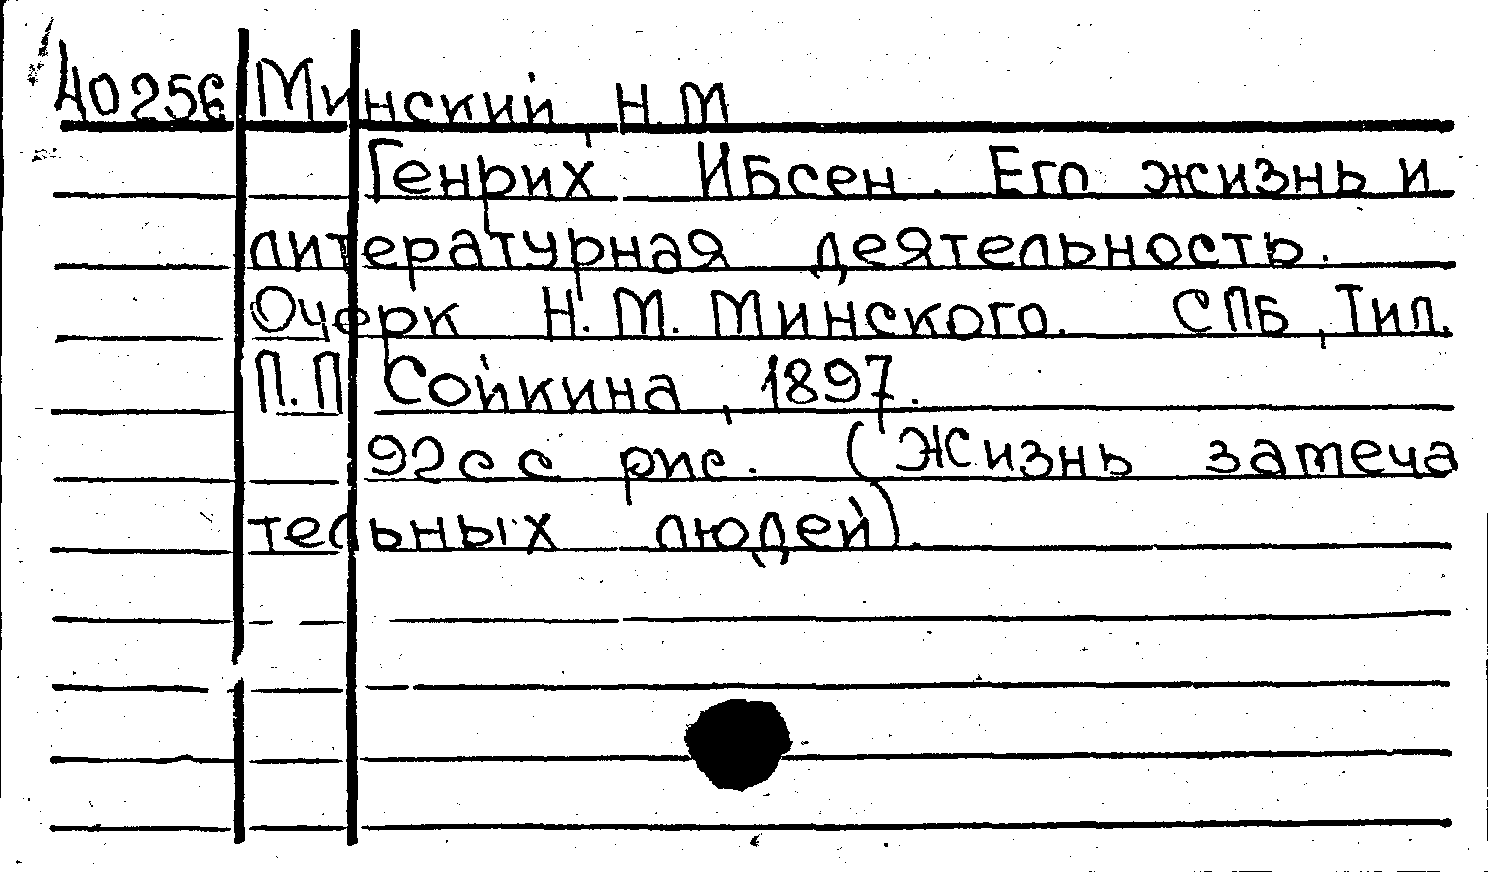 40256 Минский, Н.М
Генрих Ибсен. Его жизнь и
литературная деятельность.
Очерк Н.М. Минского. СПБ, Тип.
П.П Сойкина, 1897.
92с с рис. (Жизнь замеча
тельных людей).